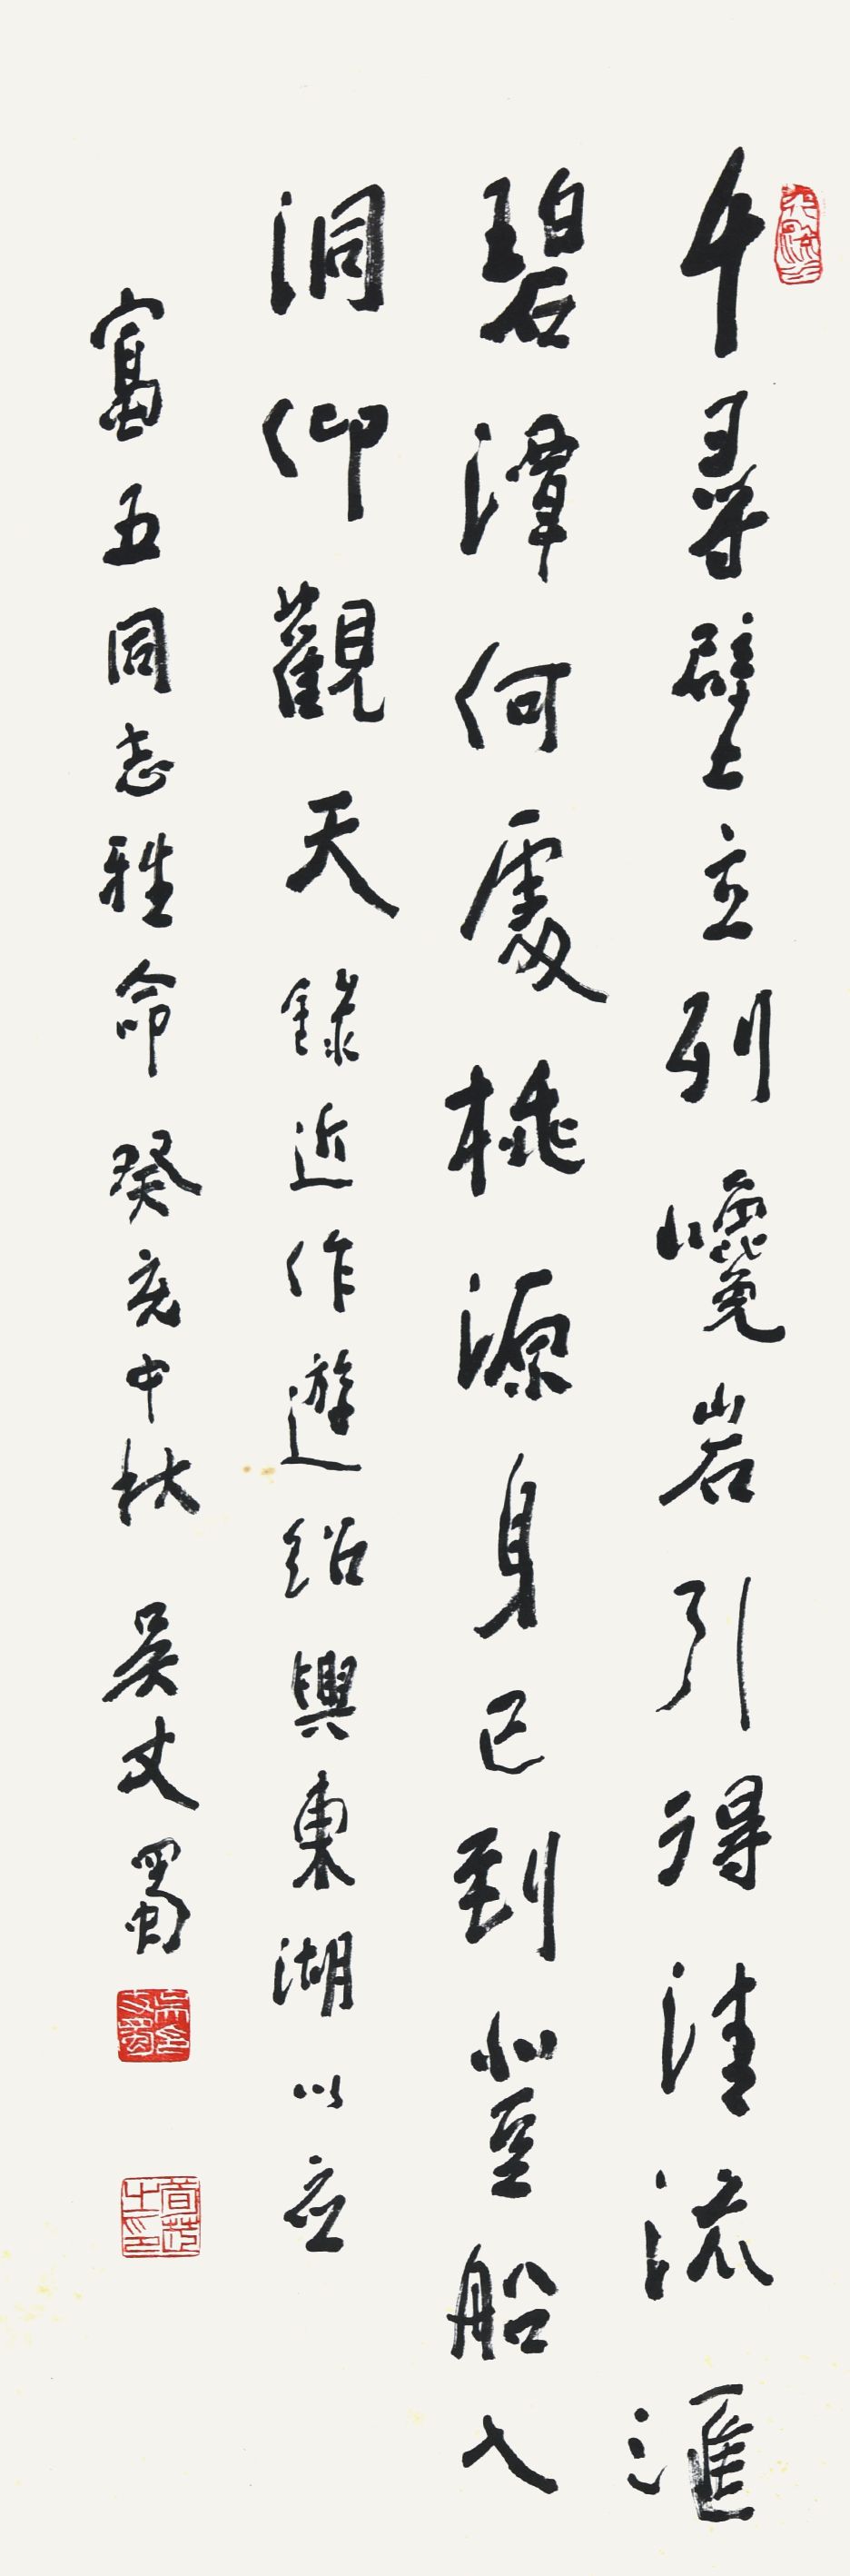 千尋壁立列巉岩引得清流滙
碧潭何處桃源身已到登船入
洞仰觀天錄近作遊紹興東湖以应
富五同志雅命癸亥中秋吴丈蜀
吴丈蜀